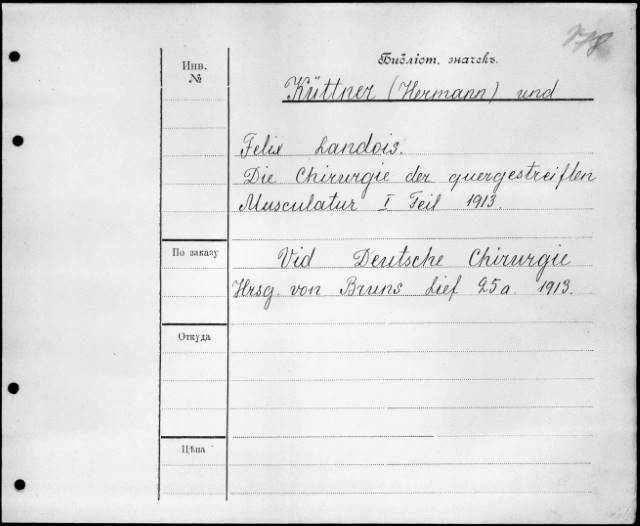 Библіот. значекъ.
Инв.
№
Küttner (Hermann) und
Felix Landois.
Die Chirurgie der quergestreiften
Musculatur I Teil 1913.
По заказу
Vid Deutsche Chirurgie
Hrsg. von Bruns Lief 25a. 1913.
Откуда
Цѣна